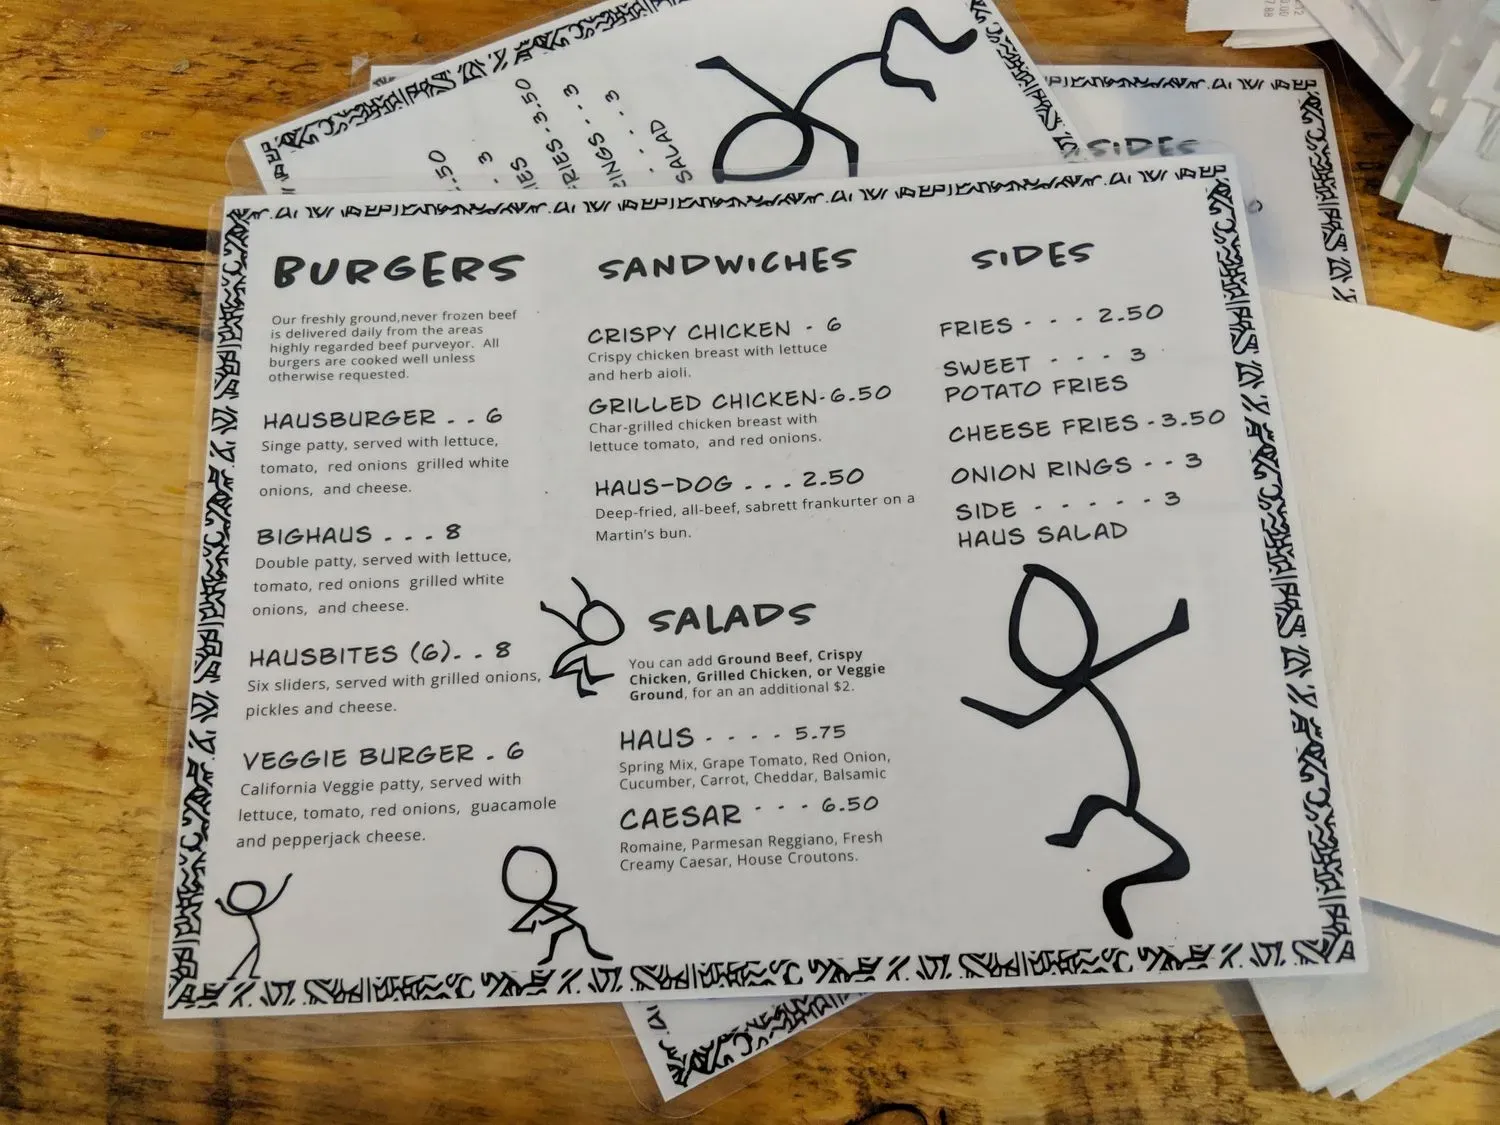 BURGERS
Our freshly ground,never frozen beef
is delivered daily from the areas
highly regarded beef purveyor. All
burgers are cooked well unless
otherwise requested.
HAUSBURGER . . 6
Singe patty, served with lettuce,
tomato, red onions grilled white
onions, and cheese.
BIGHAUS . . . 8
Double patty, served with lettuce,
tomato, red onions grilled white
onions, and cheese.
HAUSBITES (6). . 8
Six sliders, served with grilled onions,
pickles and cheese.
VEGGIE BURGER . 6
California Veggie patty, served with
lettuce, tomato, red onions, guacamole
and pepperjack cheese.
SANDWICHES
CRISPY CHICKEN - 6
Crispy chicken breast with lettuce
and herb aioli.
GRILLED CHICKEN-6.50
Char-grilled chicken breast with
lettuce tomato, and red onions.
HAUS-DOG . . . 2.50
Deep-fried, all-beef, sabrett frankurter on a
Martin's bun.
SALADS
You can add Ground Beef, Crispy
Chicken, Grilled Chicken, or Veggie
Ground, for an an additional $2.
HAUS - - - - 5.75
Spring Mix, Grape Tomato, Red Onion,
Cucumber, Carrot, Cheddar, Balsamic
CAESAR - - - 6.50
Romaine, Parmesan Reggiano, Fresh
Creamy Caesar, House Croutons.
SIDES
FRIES - - - 2.50
SWEET - - - 3
POTATO FRIES
CHEESE FRIES - 3.50
ONION RINGS - - 3
SIDE - - - - - 3
HAUS SALAD
SIDES
.50
3
IES
FRIES-3.50
INGS - - 3
. . . 3
SALAD